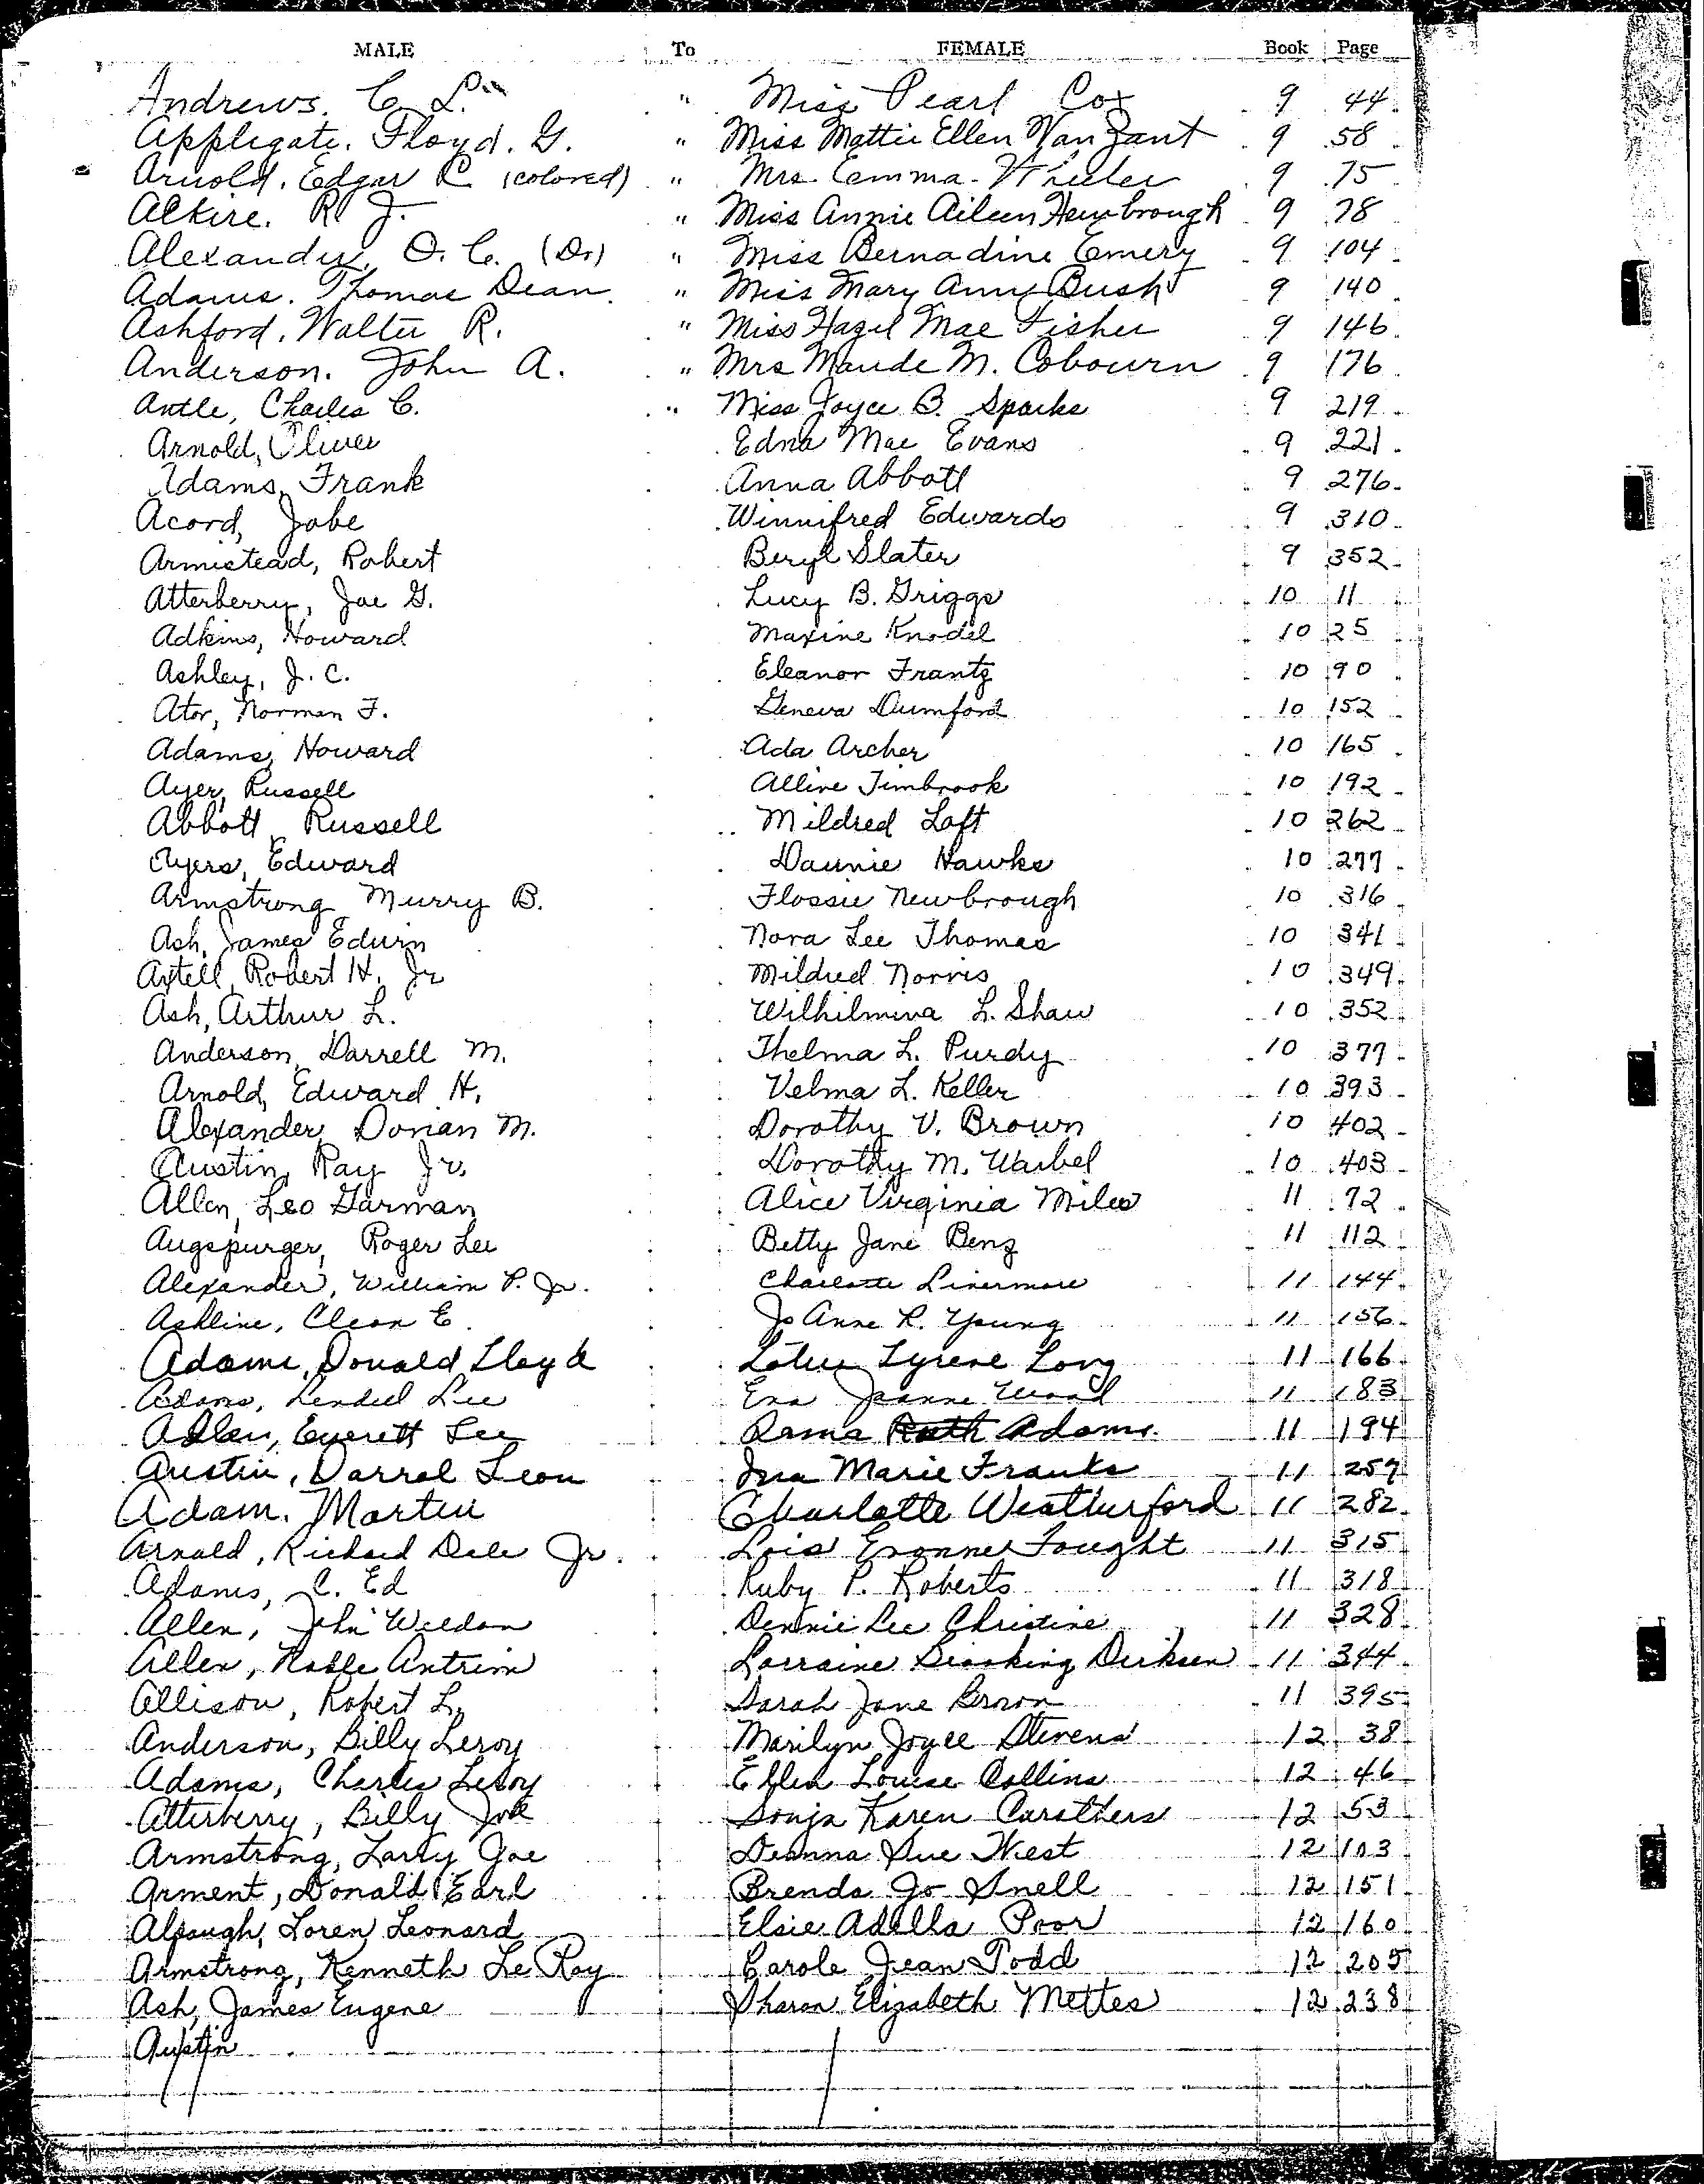 MALE To FEMALE Book Page
Andrews. C. L. " Miss Pearl Cox 9 44
Applegate. Floyd. G. " Miss Mattie Ellen Van Zant 9 58
Arnold. Edgar R. (colored) " Mrs. Emma Wheeler 9 75
Alkire. R. J. " Miss Annie Aileen Newbrough 9 78
Alexander, O. C. (Dr) " Miss Bernadine Emery 9 104
Adams. Thomas Dean " Miss Mary Amy Bush 9 140
Ashford. Walter R. " Miss Hazel Mae Fisher 9 146
Anderson. John A. " Mrs Maude M. Cobourn 9 176
Antle, Charles C. " Miss Joyce B. Sparks 9 219
Arnold, Oliver Edna Mae Evans 9 221
Adams, Frank Anna Abbott 9 276
Acord, Jobe Winnifred Edwards 9 310
Armistead, Robert Beryl Slater 9 352
Atterberry, Joe G. Lucy B. Griggs 10 11
Adkins, Howard Maxine Knodel 10 25
Ashley, J. C. Eleanor Frantz 10 90
Ator, Norman F. Geneva Dumford 10 152
Adams, Howard Ada Archer 10 165
Ayer, Russell Alline Timbrook 10 192
Abbott, Russell Mildred Loft 10 262
Ayers, Edward Daunie Hawks 10 277
Armstrong, Murry B. Flossie Newbrough 10 316
Ash, James Edwin Nora Lee Thomas 10 341
Axtell, Robert H. Jr Mildred Norris 10 349
Ash, Arthur L. Wilhilmina L. Shaw 10 352
Anderson, Darrell M. Thelma L. Purdy 10 377
Arnold, Edward H. Velma L. Keller 10 393
Alexander, Dorian M. Dorothy V. Brown 10 402
Austin, Ray Jr. Dorothy M. Warbel 10 403
Allen, Leo Garman Alice Virginia Miles 11 72
Augspurger, Roger Lee Betty Jane Benz 11 112
Alexander, William P. Jr. Charlotte Livermore 11 144
Ashline, Cleon E. Jo Anne R. Young 11 156
Adams, Donald Lloyd Lotus Lyrene Long 11 166
Adams, Lendell Lee Eva Jeanne Wood 11 183
Allen, Everett Lee Rama Ruth Adams 11 194
Austin, Darrel Leon Ina Marie Franks 11 257
Adam. Martin Charlotte Weatherford 11 282
Arnold, Richard Dale Jr. Lois Evonne Fought 11 315
Adams, C. Ed Ruby P. Roberts 11 318
Allen, John Weldon Dennie Lee Christine 11 328
Allen, Noble Antrim Lorraine Brooking Dirksen 11 344
Allison, Robert L. Sarah Jane Brown 11 395
Anderson, Billy Leroy Marilyn Joyce Stevens 12 38
Adams, Charles Leroy Ellen Louise Collins 12 46
Atterberry, Billy Joe Sonja Karen Carothers 12 53
Armstrong, Larry Joe Deanna Sue West 12 103
Arment, Donald Earl Brenda Jo Snell 12 151
Alpaugh, Loren Leonard Elsie Adella Poor 12 160
Armstrong, Kenneth Le Roy Carole Jean Todd 12 205
Ash, James Eugene Sharon Elizabeth Mettes 12 238
Austin